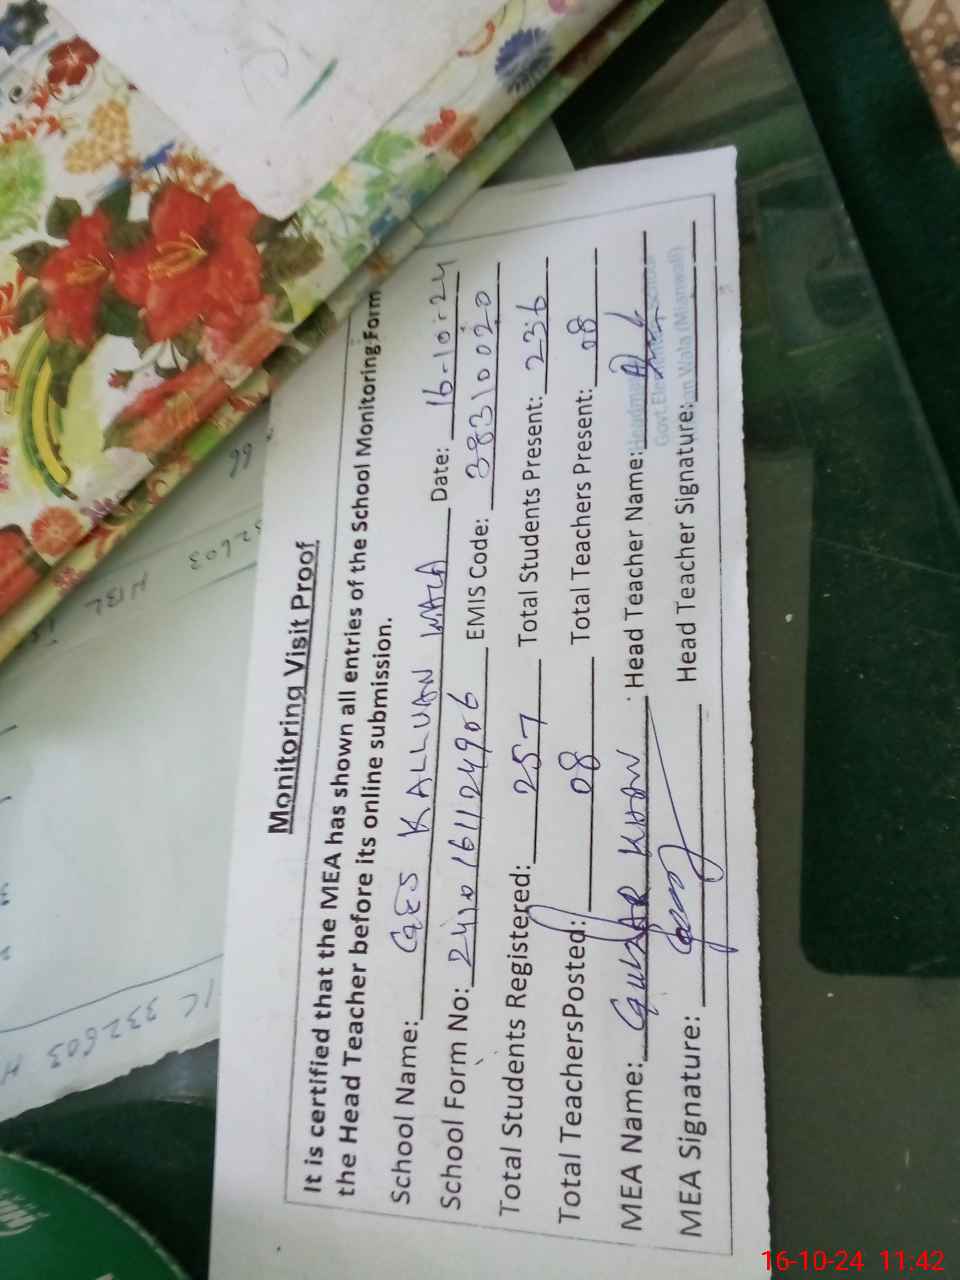 Monitoring Visit Proof
It is certified that the MEA has shown all entries of the School Monitoring Form
the Head Teacher before its online submission.
School Name: GES KALLUAN WALA Date: 16-10-24
School Form No: 2410161124906 EMIS Code: 38310020
Total Students Registered: 257 Total Students Present: 236
Total TeachersPosted: 08 Total Teachers Present: 08
MEA Name: GULZAR KHAN Head Teacher Name:
MEA Signature: Head Teacher Signature:
Wala (Mianwali)
66
32603
HBL
IC 332603 H
16-10-24 11:42